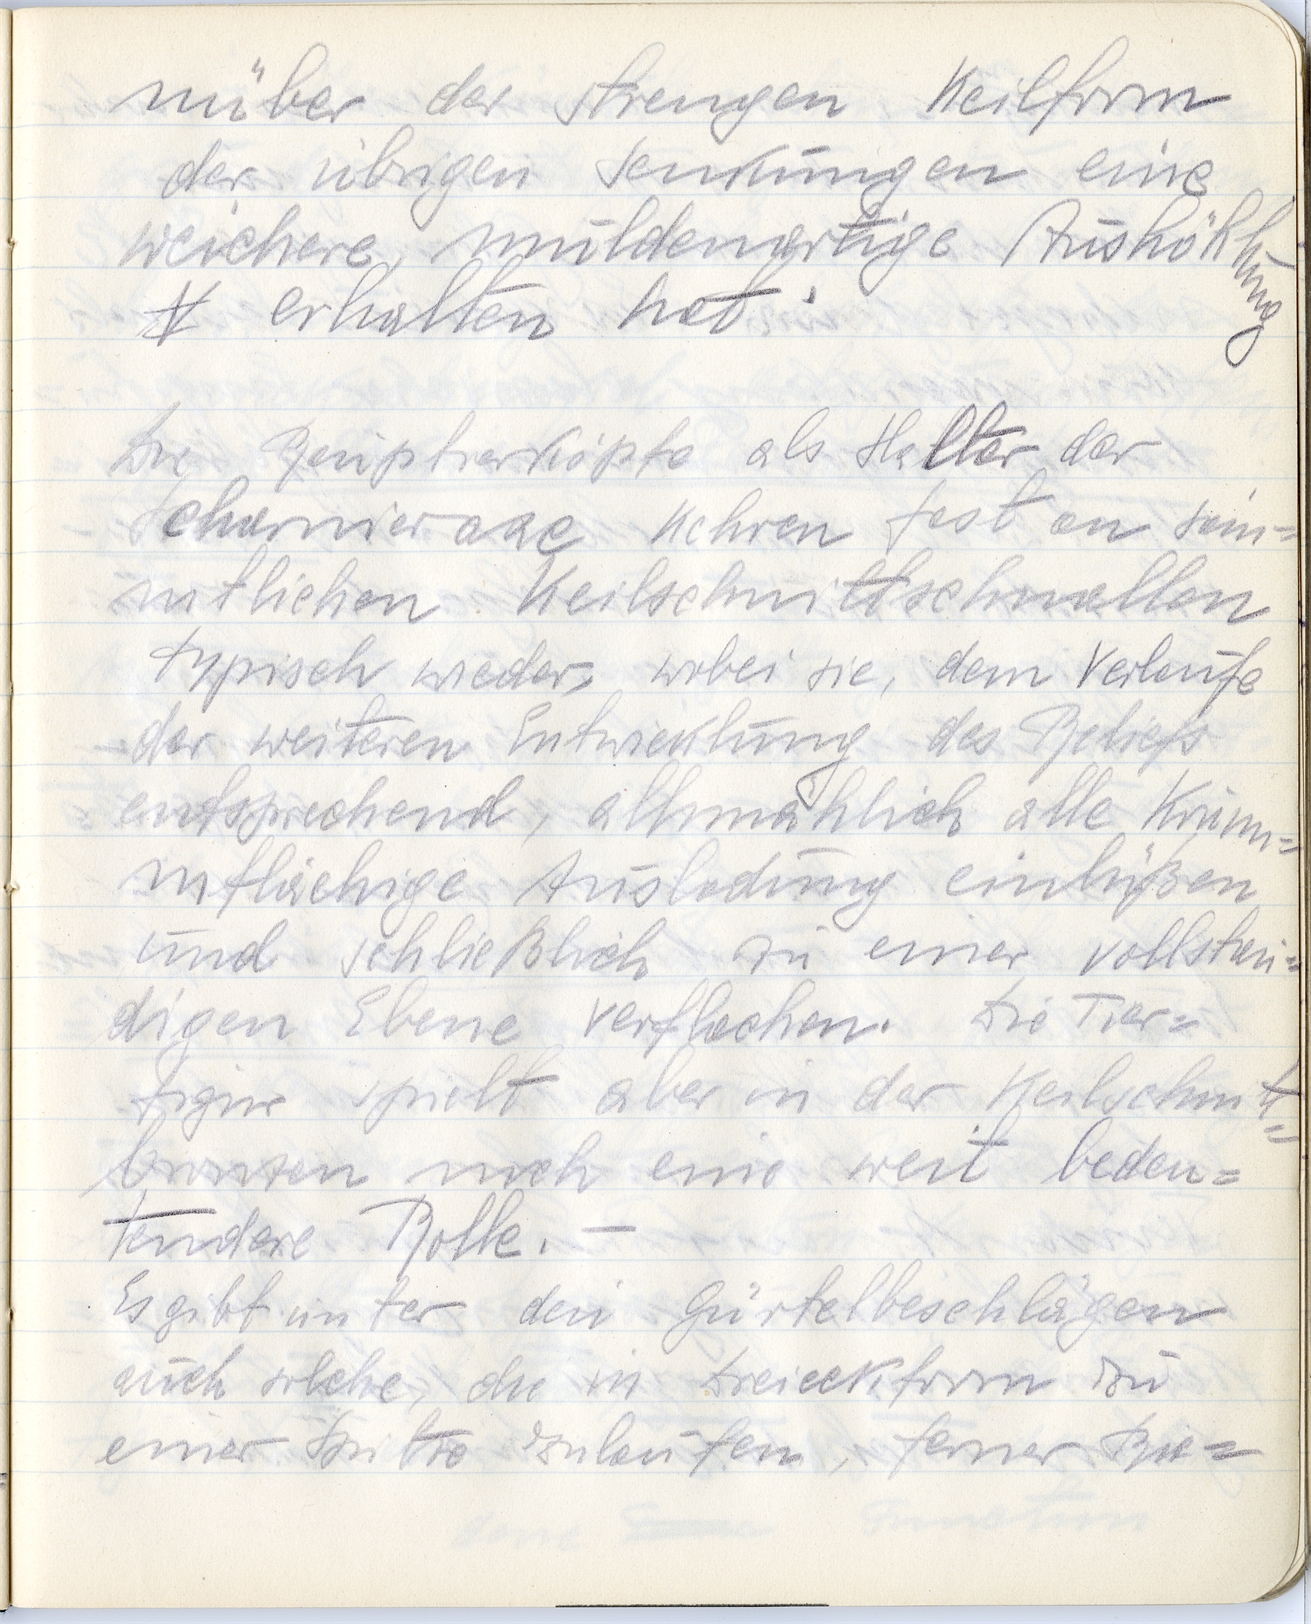 nüber der strengen Keilform
der übrigen Senkungen eine
weichere, muldenartige Aushöhlung
erhalten hat.
Die Peripherköpfe als Halter der
Scharnieraxe kehren fast an säm=
mtlichen Keilschnittschnallen
typisch wieder, wobei sie, dem Verlaufe
der weiteren Entwicklung des Reliefs
entsprechend, allmählich alle Krum=
mflächige Ausladung einbüßen
und schließlich zu einer vollstän=
digen Ebene verflachen. Die Tier=
figur spielt aber in der Keilschnitt=
bronzen noch eine weit bedeu=
tendere Rolle. —
Es gibt unter den Gürtelbeschlägen
auch solche, die in Dreieckform zu
einer Spitze zulaufen, ferner